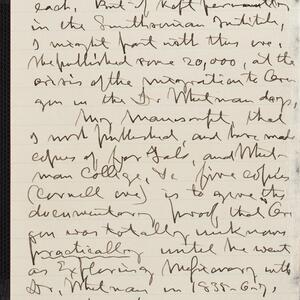 each. But if kept permanently
in the Smithsonian Institute,
I might part with this one.
He published some 20,000, at the
crisis of the migration to Ore
gon in the Dr. Whitman days.
My manuscript, that
I most published, and have made
copies of, for Yale, and Whit-
man College, &c five copies
(Cornell one) is to give the
documentary proof, that Ore
gon was totally unknown
practically until he went
as Exploring Missionary with
Dr. Whitman in 1835-6-7,